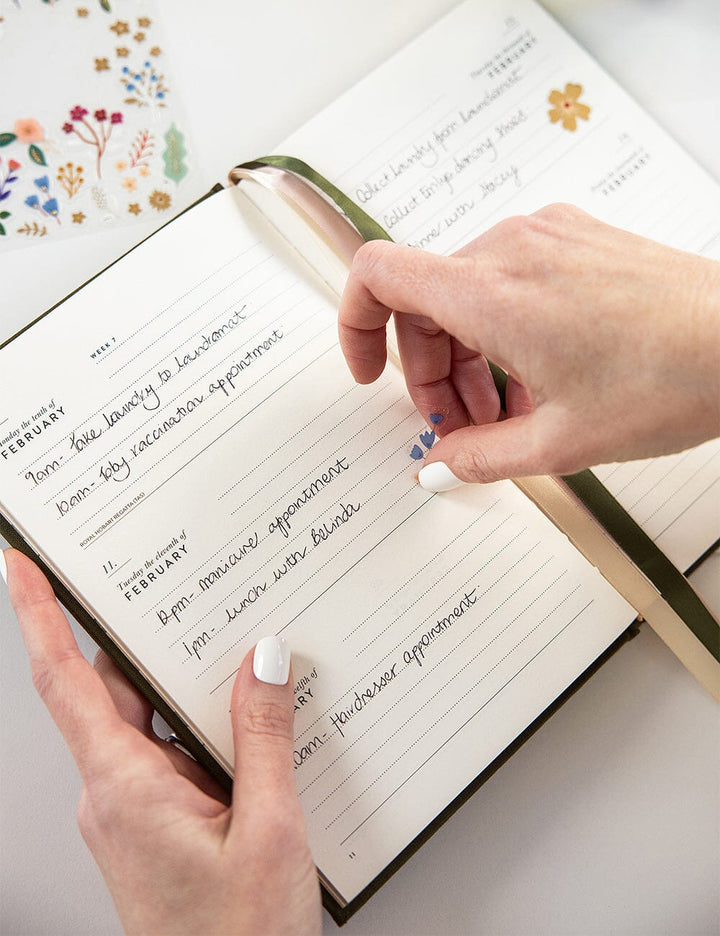 WEEK 7
Monday the tenth of
FEBRUARY
9am - Take laundry to laundramat
10am - Toby vaccination appointment
ROYAL HOBART REGATTA (TAS)
11.
Tuesday the eleventh of
FEBRUARY
12pm - manicure appointment
1pm - lunch with Belinda
of
ARY
am - Hairdresser appointment
Thursday the
FEBRUARY
Collect laundry from laundramat
Collect Emilys dancing shoes
with Stacey
FEBRUARY